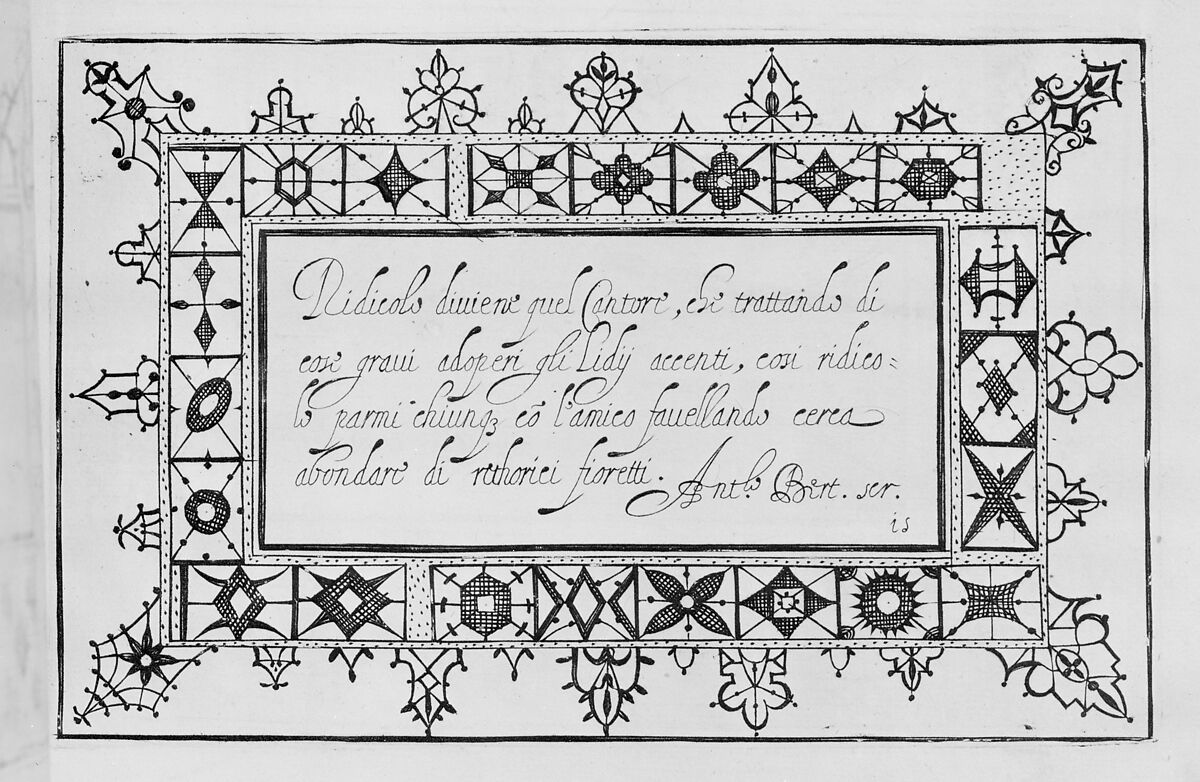 Ridicolo diuiene quel Cantore, che trattando di
cose graui adoperi gli Lidij accenti, cosi ridico=
lo parmi chiunq3 cō l'amico fauellando cerca
abondare di rethorici fioretti. Ant.º Bert. scr.
is